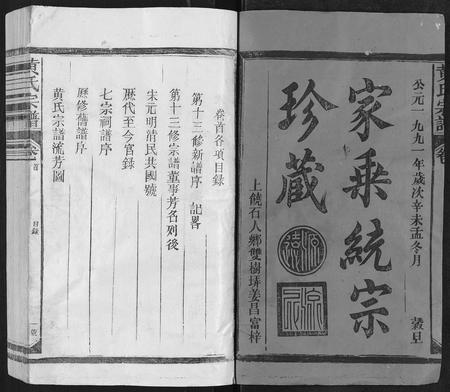 黄氏宗譜
公元一九九一年歲次辛未孟冬月 穀旦
家乘統宗
珍藏
源遠流
上饒石人鄉雙樹塝姜昌富梓
卷首各項目録
第十三修新譜序 記畧
第十三修宗譜董事芳名列後
宋元明清民共國號
歷代至今官録
七宗祠譜序
歷修舊譜序
黄氏宗譜流芳圖
黄氏宗譜 卷首 目録 一號